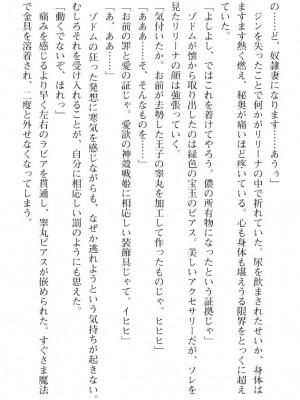 の……ど、奴隷妻になります……あうぅ」
ジンを失ったことで何かがリリーナの中で折れていた。尿を飲まされたせいか、身体は
ますます熱く燃え、秘奥が痛いほど疼いている。心も身体も堪えうる限界をとっくに超え
ていた。
「よしよし、ではこれを着けてやろう。儂の所有物になったという証拠じゃ」
ゾドムが懐から取り出したのは緑色の宝玉のピアス。美しいアクセサリーだが、ソレを
見たリリーナの顔は強張っていく。
「気付いたか。お前が去勢した王子の睾丸を加工して作ったものじゃ。ヒヒ」
「あああ……そ、そんなものを……」
「お前の罪と愛の証じゃ。愛欲の神殻戦姫に相応しい装飾具じゃて。イヒヒ」
「あ、ああ……」
ゾドムの狂った発想に寒気を感じながらも、なぜか逃れようという気持ちが起きない。
むしろそれを受け入れることが、自分に相応しい罰のようにも思えた。
「動くでないぞ、ほれっ」
痛みを感じるより早く左右のラビアを貫通し、睾丸ピアスが嵌められた。すぐさま魔法
で金具を溶着され、二度と外せなくなってしまう。